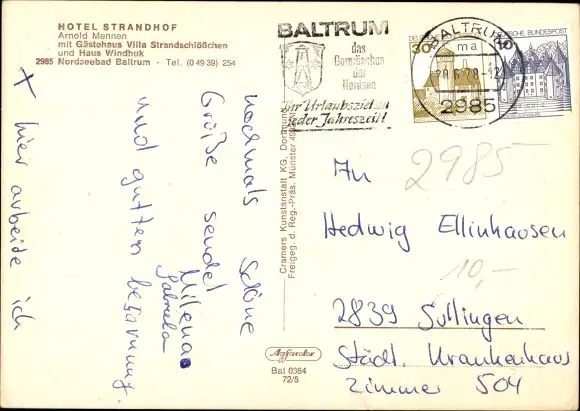 HOTEL STRANDHOF
Arnold Mennen
mit Gästehaus Villa Strandschlößchen
und Haus Windhuk
2985 Nordseebad Baltrum - Tel. (0 49 39) 254
BALTRUM
das
Dornröschen
der
Nordsee
Ihr Urlaubsziel zu
jeder Jahreszeit!
BALTRUM
ma
2985
30
DEUTSCHE BUNDESPOST
nochmals schöne
Grüße sendet
Milena
Gabriela
und gutten besserung.
X hier arbeite ich
Cramers Kunstanstalt KG, Dortmund
Freigeg. d. Reg.-Präs. Münster
Agfacolor
Bal 0384
72/5
2985
10,-
An
Hedwig Ellinhausen
2839 Sullingen
Städt. Krankenhaus
Zimmer 504